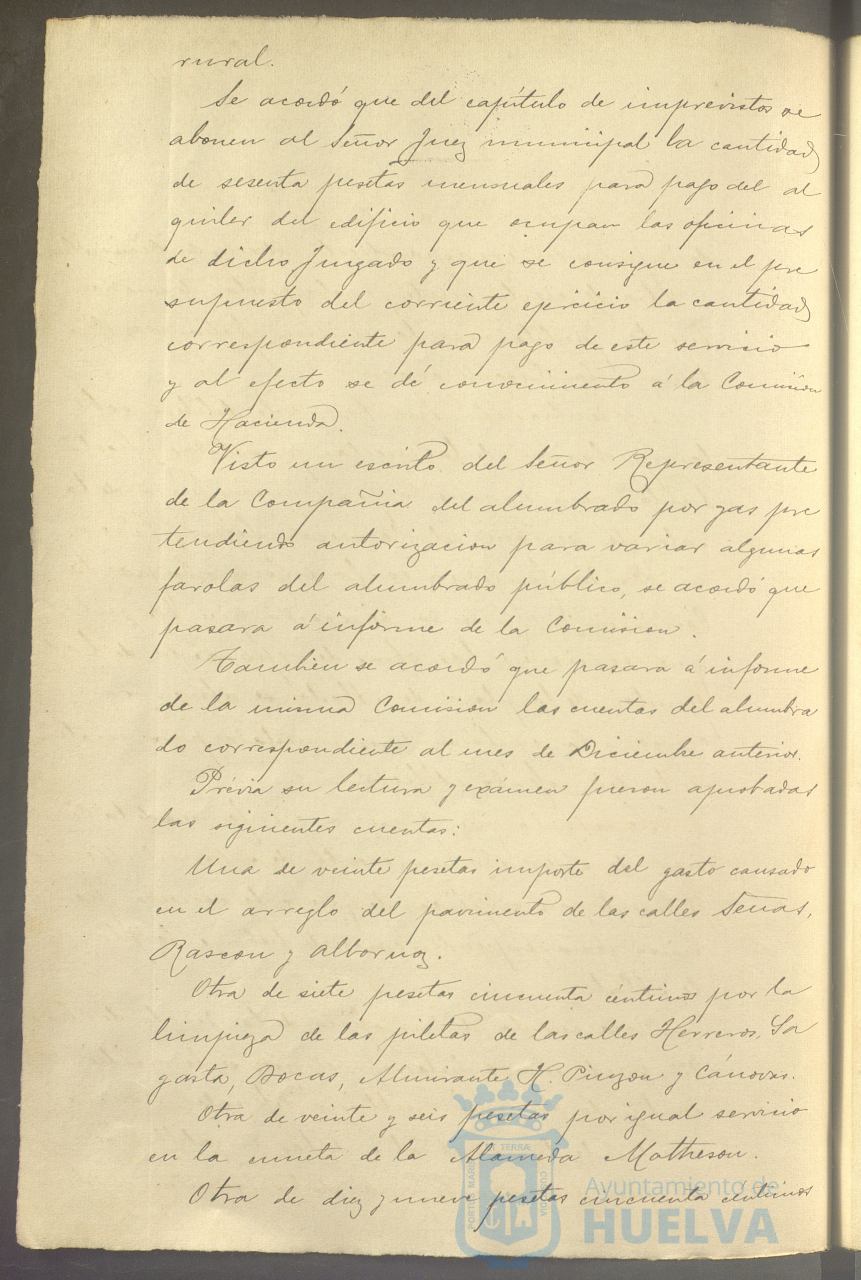 rural.
Se acordó que del capítulo de imprevistos se
abonen al Señor Juez municipal la cantidad
de sesenta pesetas mensuales para pago del al
quiler del edificio que ocupan las oficinas
de dicho Juzgado y que se consigne en el pre
supuesto del corriente ejercicio la cantidad
correspondiente para pago de este servicio
y al efecto se dé conocimiento á la Comisión
de Hacienda.
Visto un escrito del Señor Representante
de la Compañia del alumbrado por gas pre
tendiendo autorizacion para variar algunas
farolas del alumbrado público, se acordó que
pasara á informe de la Comision.
Tambien se acordó que pasara á informe
de la misma Comision las cuentas del alumbra
do correspondiente al mes de Diciembre anterior.
Prévia su lectura y exámen fueron aprobadas
las siguientes cuentas:
Una de veinte pesetas importe del gasto causado
en el arreglo del pavimento de las calles
Rascon y Albornoz.
Otra de siete pesetas cincuenta céntimos por la
limpieza de las piletas de las calles Herreros, Sa
gasta, Bocas, Almirante H. Pinzon y Cánovas.
Otra de veinte y seis pesetas por igual servicio
en la cuneta de la Alameda Matheson.
Otra de diez y nueve pesetas cincuenta céntimos
Ayuntamiento de
HUELVA